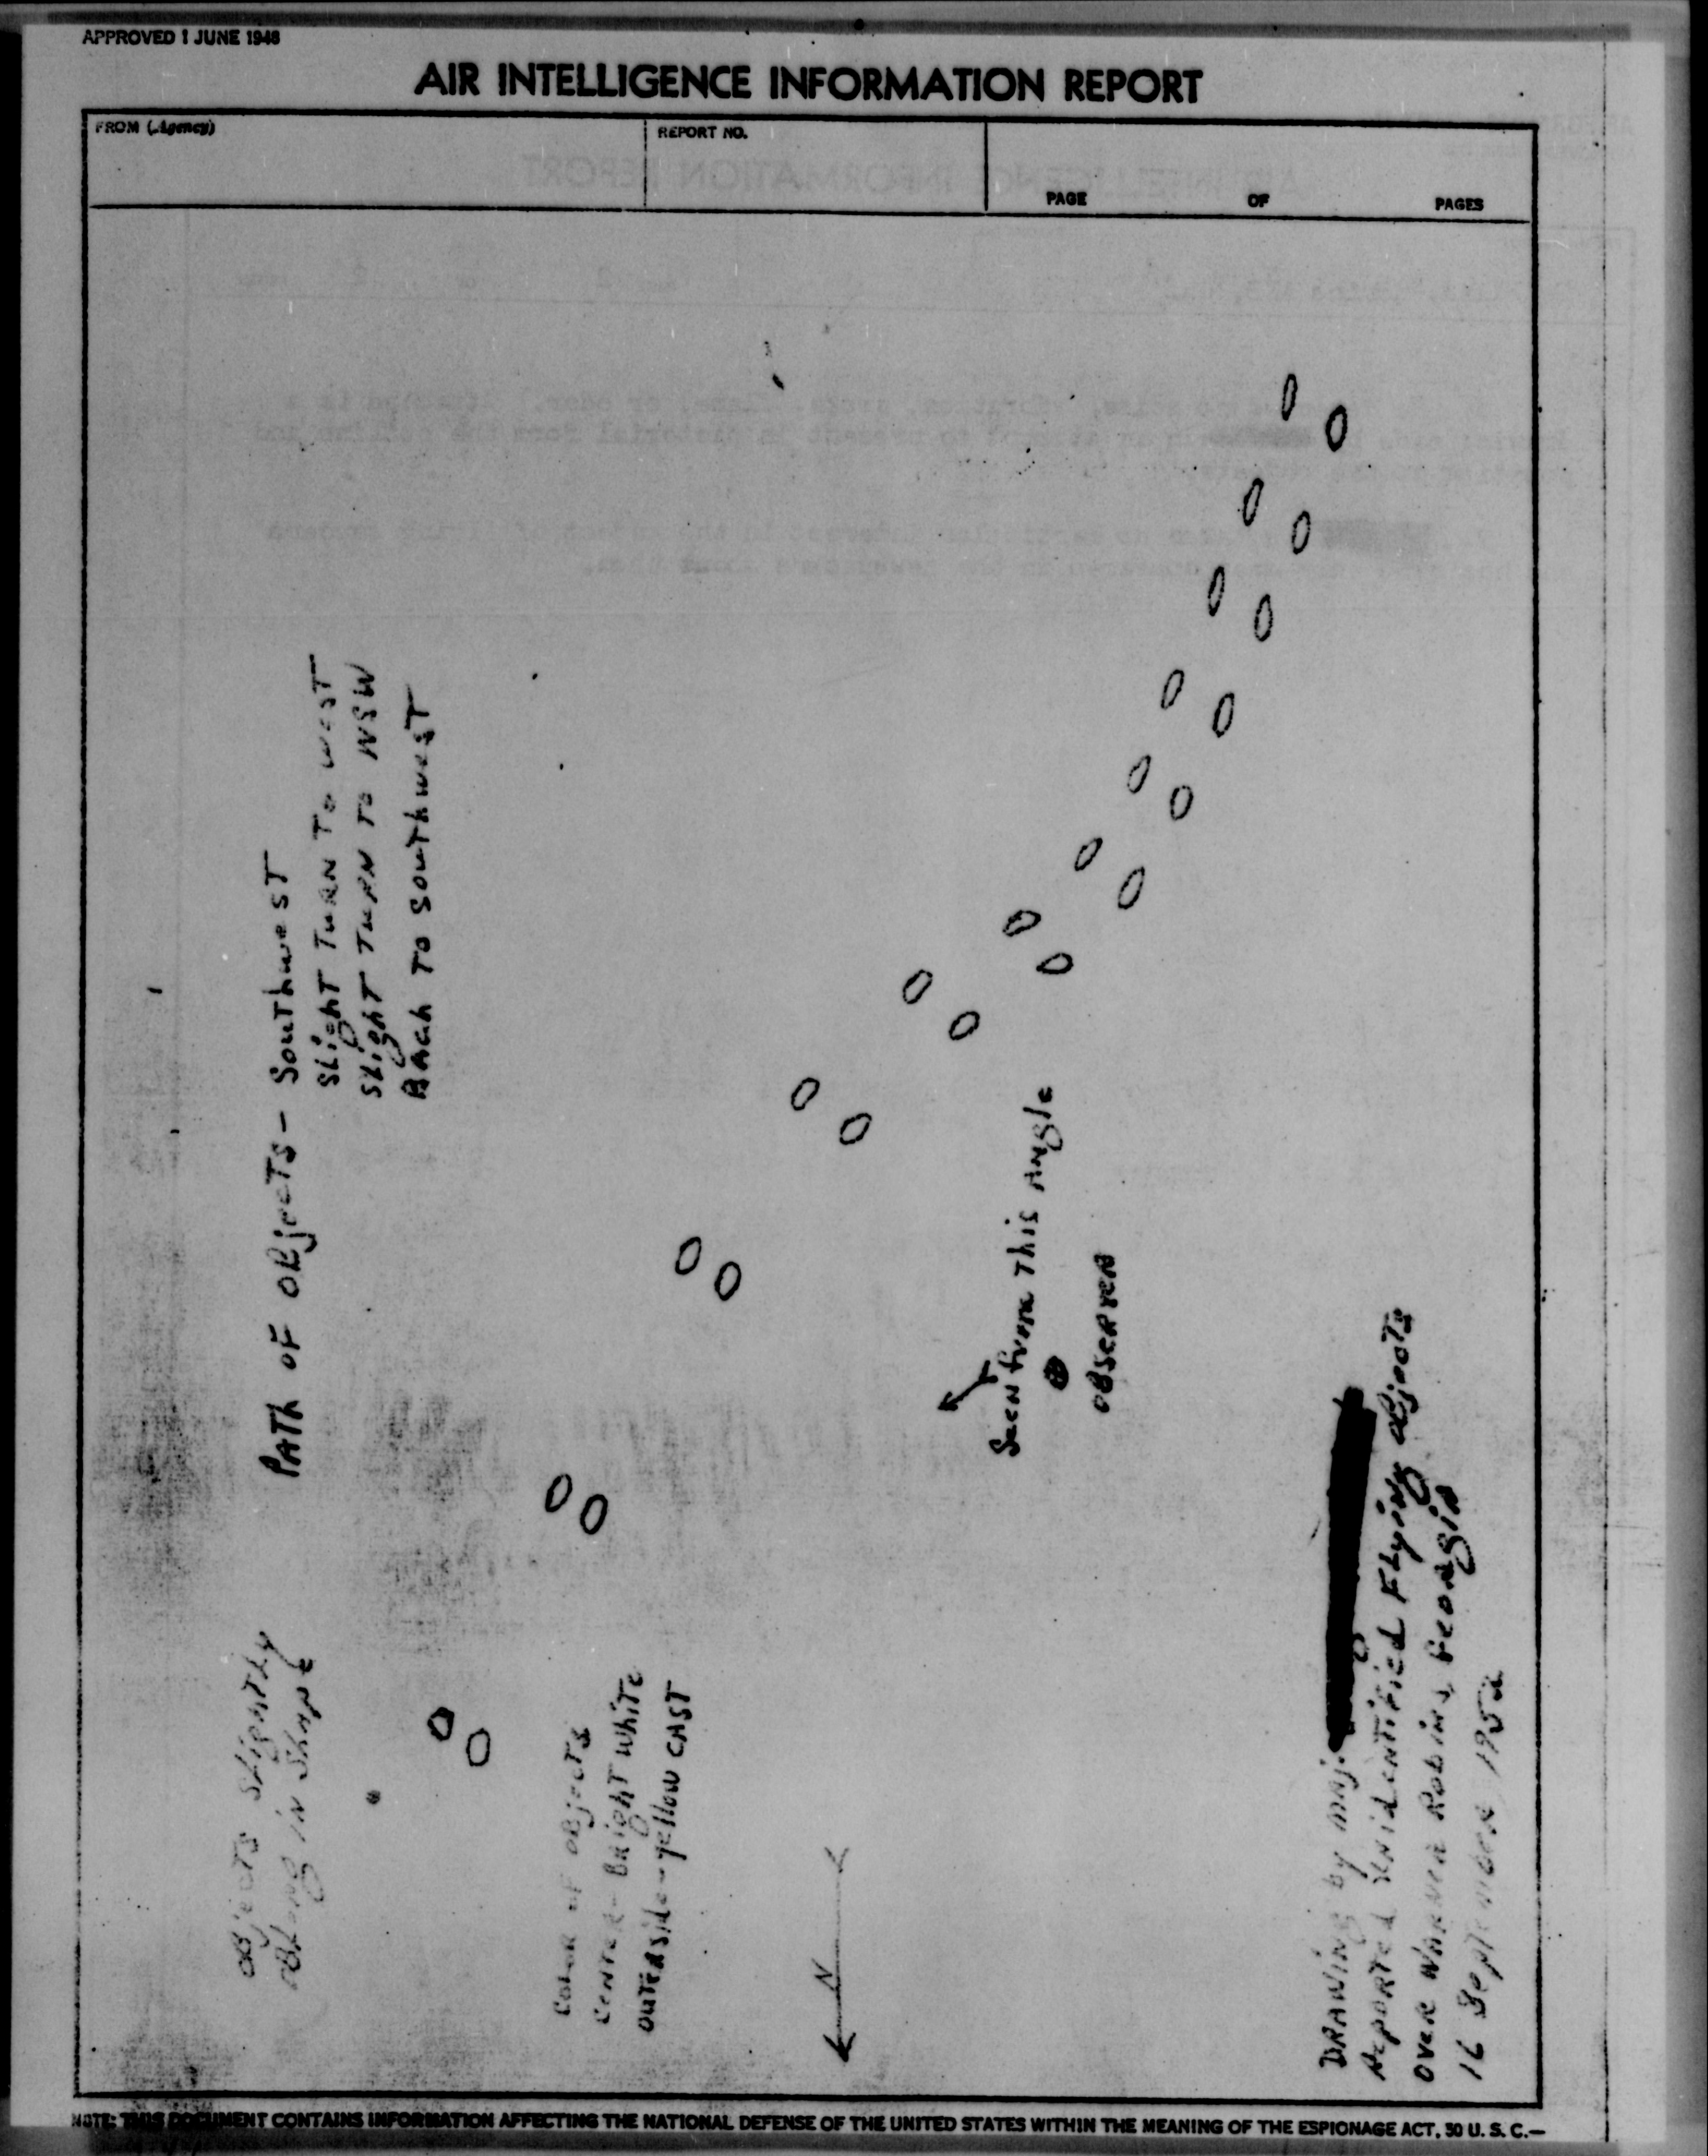 APPROVED 1 JUNE 1948
AIR INTELLIGENCE INFORMATION REPORT
FROM (Agency)
REPORT NO.
PAGE OF PAGES
PATH OF OBjecTS - SouThwesT
SLighT TuRN To wesT
SLighT TuRN To WSW
BAck To SouThwesT
OBjecTS SLighTLy
OBLong in Shape
Color of OBjecTS
CenTer - BRighT WhiTe
OuTeRside - yellow CAST
N
Seen from This Angle
OBSeRVeR
DRAWing by Maj.
RepoRTed UnidenTiFied FLying OBjecTs
OveR WARNeR Robins, GeoRgiA
16 SepTembeR 1952
NOTE: THIS DOCUMENT CONTAINS INFORMATION AFFECTING THE NATIONAL DEFENSE OF THE UNITED STATES WITHIN THE MEANING OF THE ESPIONAGE ACT, 50 U. S. C.—